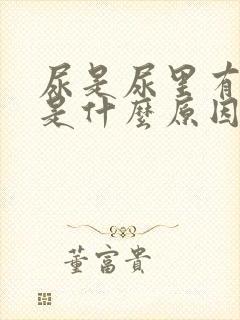 尿是尿里有
是什麼原因
董富貴